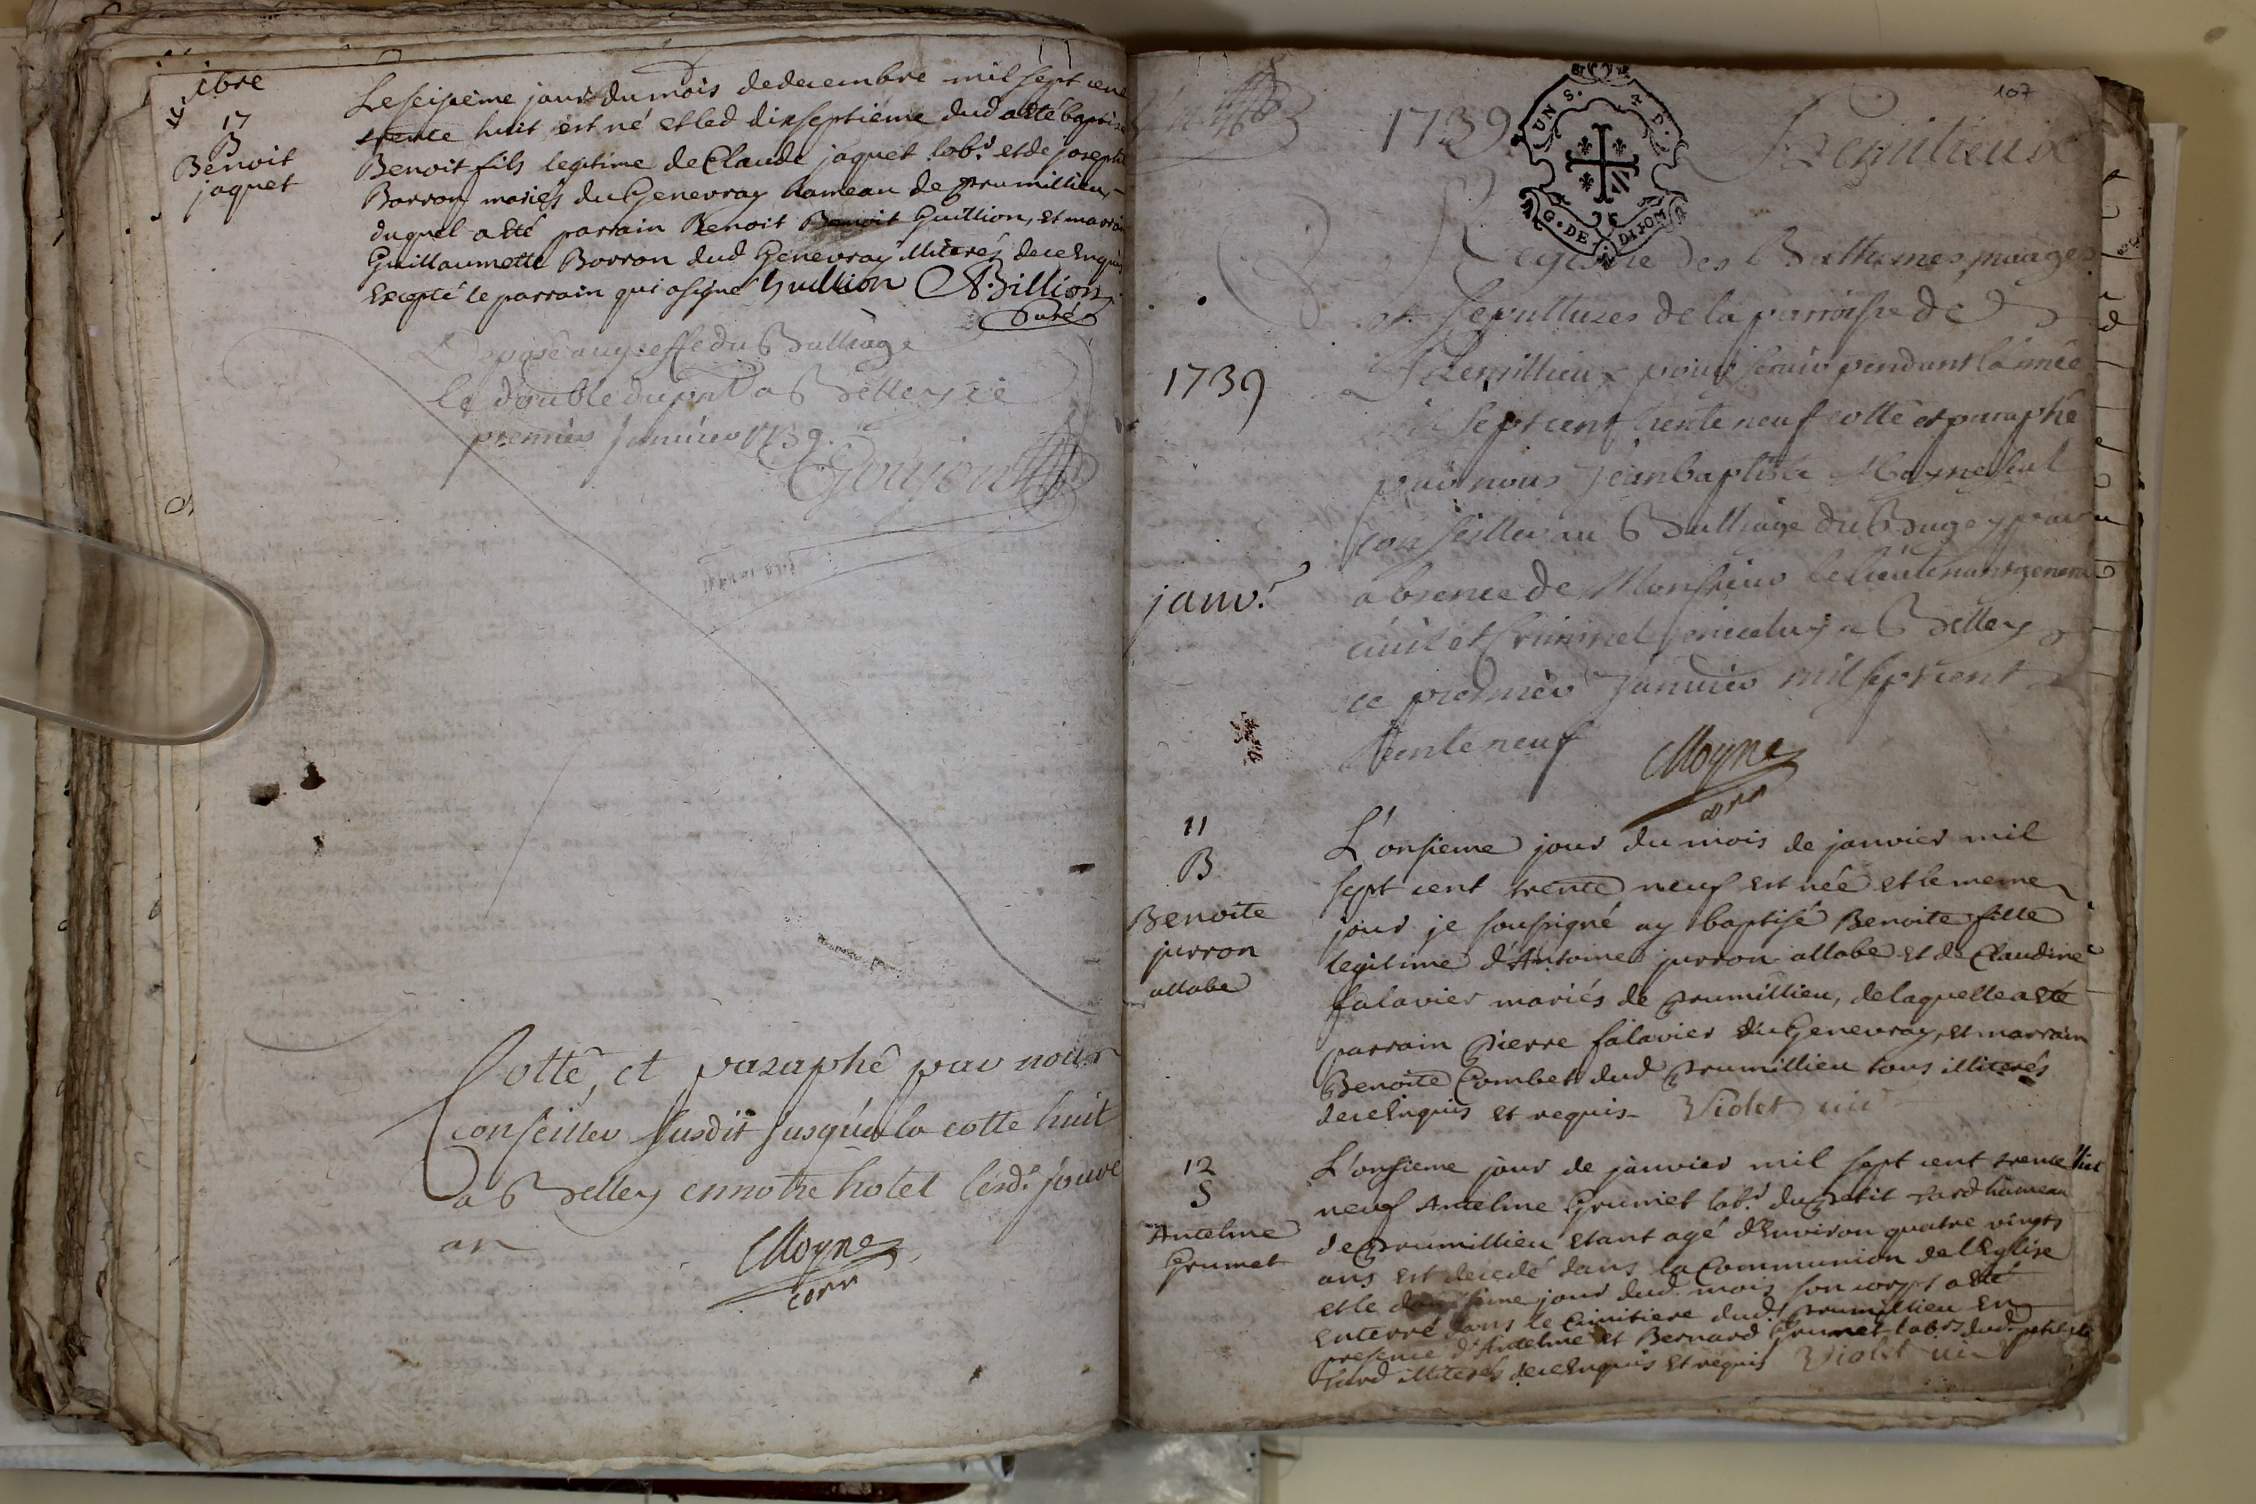 xbre
17
B
Benoit
jaquet
Le seisieme jour du mois de decembre mil sept cent
trente huit est né et led dixseptieme dud a été baptisé
Benoit fils legitime de Claude jaquet lab.r et de josephe
Borron mariés du Genevray hameau de prumillieu,
duquel a été parrain Benoit Benoit Guillion, et marrain
Guillaumette Borron dud Genevray illiterés de ce Enquis
Excepté le parrain qui a signé Guillion Billion
Curé
au greffe du Balliage
le double du a Belley ce
premier Janvier 1739.
Goujon
Cotté, et paraphé par nous
conseiller susdit jusqu'a la cotte huit
a Belley en notre hotel lesd.s jour et
an
Moyne
107
1739
Premilieux
UNS.
G. DE DIJON
Registre des Bathemes mariages
et sepultures de la parroisse de
1739
Premillieux pour servir pendant l'année
mil sept cent trente neuf cotté et paraphé
par nous Jean baptiste Moyne
conseiller au Balliage du Bugey pour
janv.r
absence de Monsieur le lieutenant general
civil et Criminel a Belley
ce premier Janvier mil sept cent
trente neuf
Moyne
11
B
Benoite
jurron
allabe
L'onsieme jour du mois de janvier mil
sept cent trente neuf est née et le meme
jour je soussigné ay baptisé Benoite fille
legitime d'Antoine jurron allabe et de Claudine
falavier mariés de prumillieu, de laquelle a été
parrain pierre falavier du Genevray, et marrain
Benoite Combet dud prumillieu tous illiterés
de ce Enquis et requis Violet vic
12
S
Antelme
Grumet
L'onsieme jour de janvier mil sept cent trente
neuf Antelme Grumet lab.r du petit hameau
de prumillieu etant agé d'Environ quatre vingts
ans est decedé dans la Communion de l'Eglise
et le jour dud. mois son corps a été
enterré dans le Cimitiere dud. prumillieu En
presence d'Antelme et Bernard Grumet lab.rs dud. petit
illiterés de ce Enquis et requis Violet vic